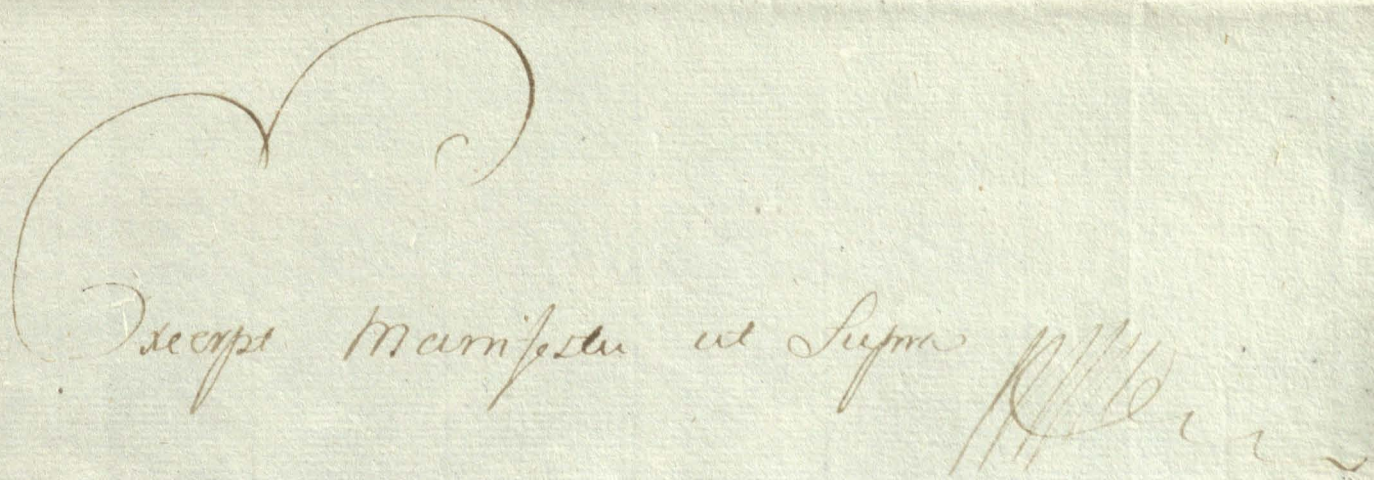 Excerpt Manifestu ut Supra